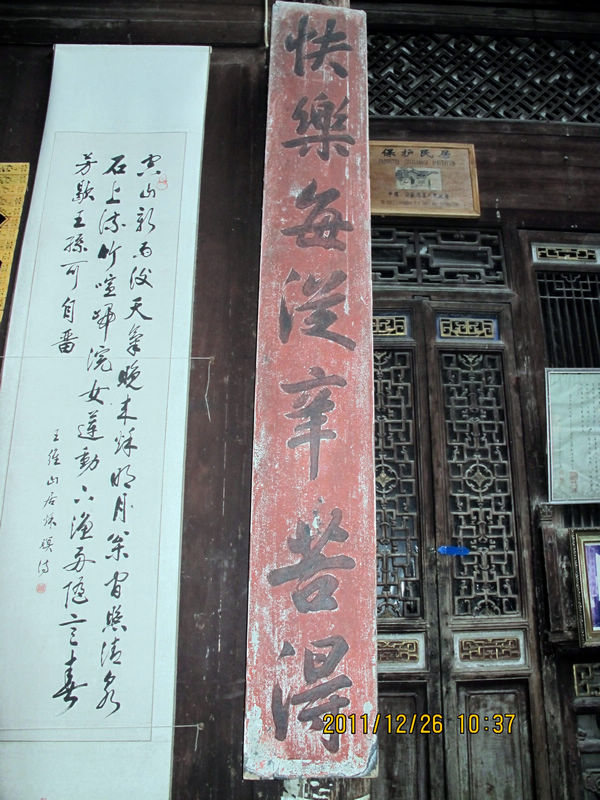 保护民居
快樂每從辛苦得
空山新雨後天氣晚来秋明月松間照清泉
石上流竹喧歸浣女蓮動下漁舟隨意春
芳歇王孫可自留
王維山居秋暝詩
2011/12/26 10:37